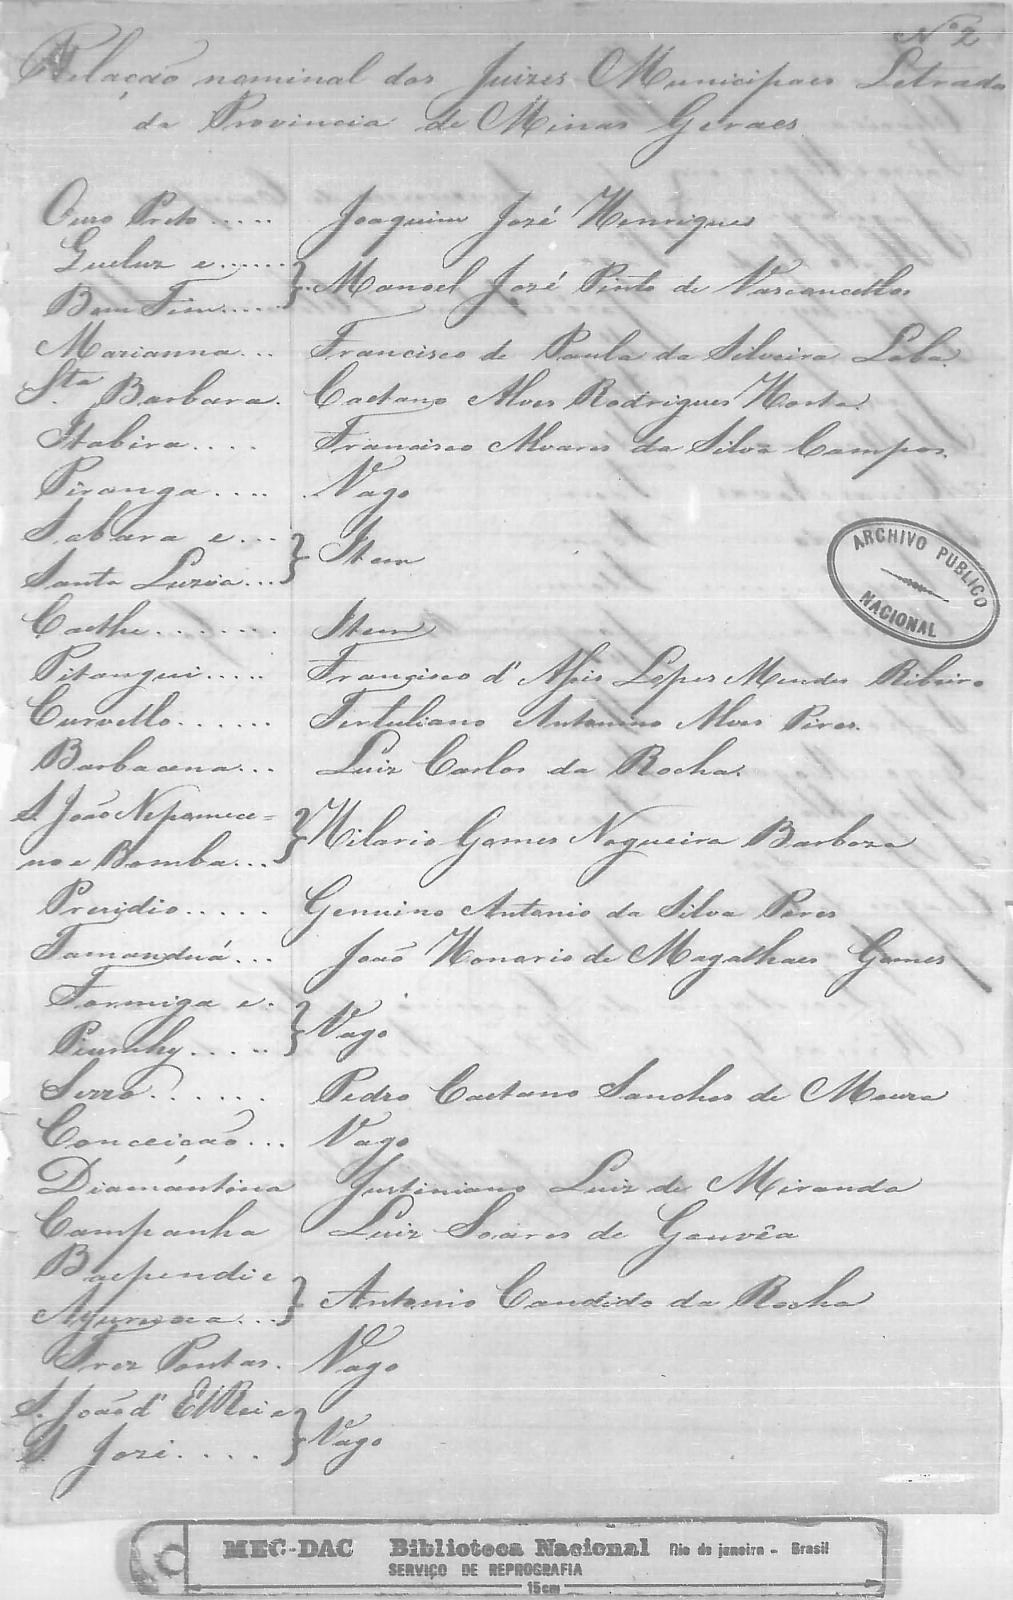 Nº 2
Relação nominal dos Juizes Municipaes Letrados
da Provincia de Minas Geraes
Ouro Preto..... Joaquim José Henriques
Queluz e......
Bom Fim..... } Manoel José Pinto de Vasconcellos
Marianna... Francisco de Paula da Silveira Lobo
Sta Barbara. Caetano Alves Rodrigues Horta.
Itabira.... Francisco Alvares da Silva Campos.
Piranga.... Vago
Sabara e...
Santa Luzia... } Item
Caethe....... Item
Pitangui..... Francisco d'Assis Lopes Mendes Ribeiro
Curvello...... Tertuliano Antonino Alves Pires.
Barbacena... Luiz Carlos da Rocha.
S. João Nepomuce=
no e Pomba... } Hilario Gomes Nogueira Barboza
Presidio..... Genuino Antonio da Silva Peres
Tamanduá... João Honorio de Magalhaes Gomes
Formiga e.
Piumhy..... } Vago
Serro...... Pedro Caetano Sanches de Moura
Conceição... Vago
Diamantina Justiniano Luiz de Miranda
Campanha Luiz Soares de Gouvêa
Baependi e
Ayuruoca... } Antonio Candido da Rocha
Tres Pontas. Vago
S. João d'ElRei e
S. José.... } Vago
ARCHIVO PUBLICO
NACIONAL
MEC-DAC Biblioteca Nacional Rio de janeiro - Brasil
SERVIÇO DE REPROGRAFIA
15cm